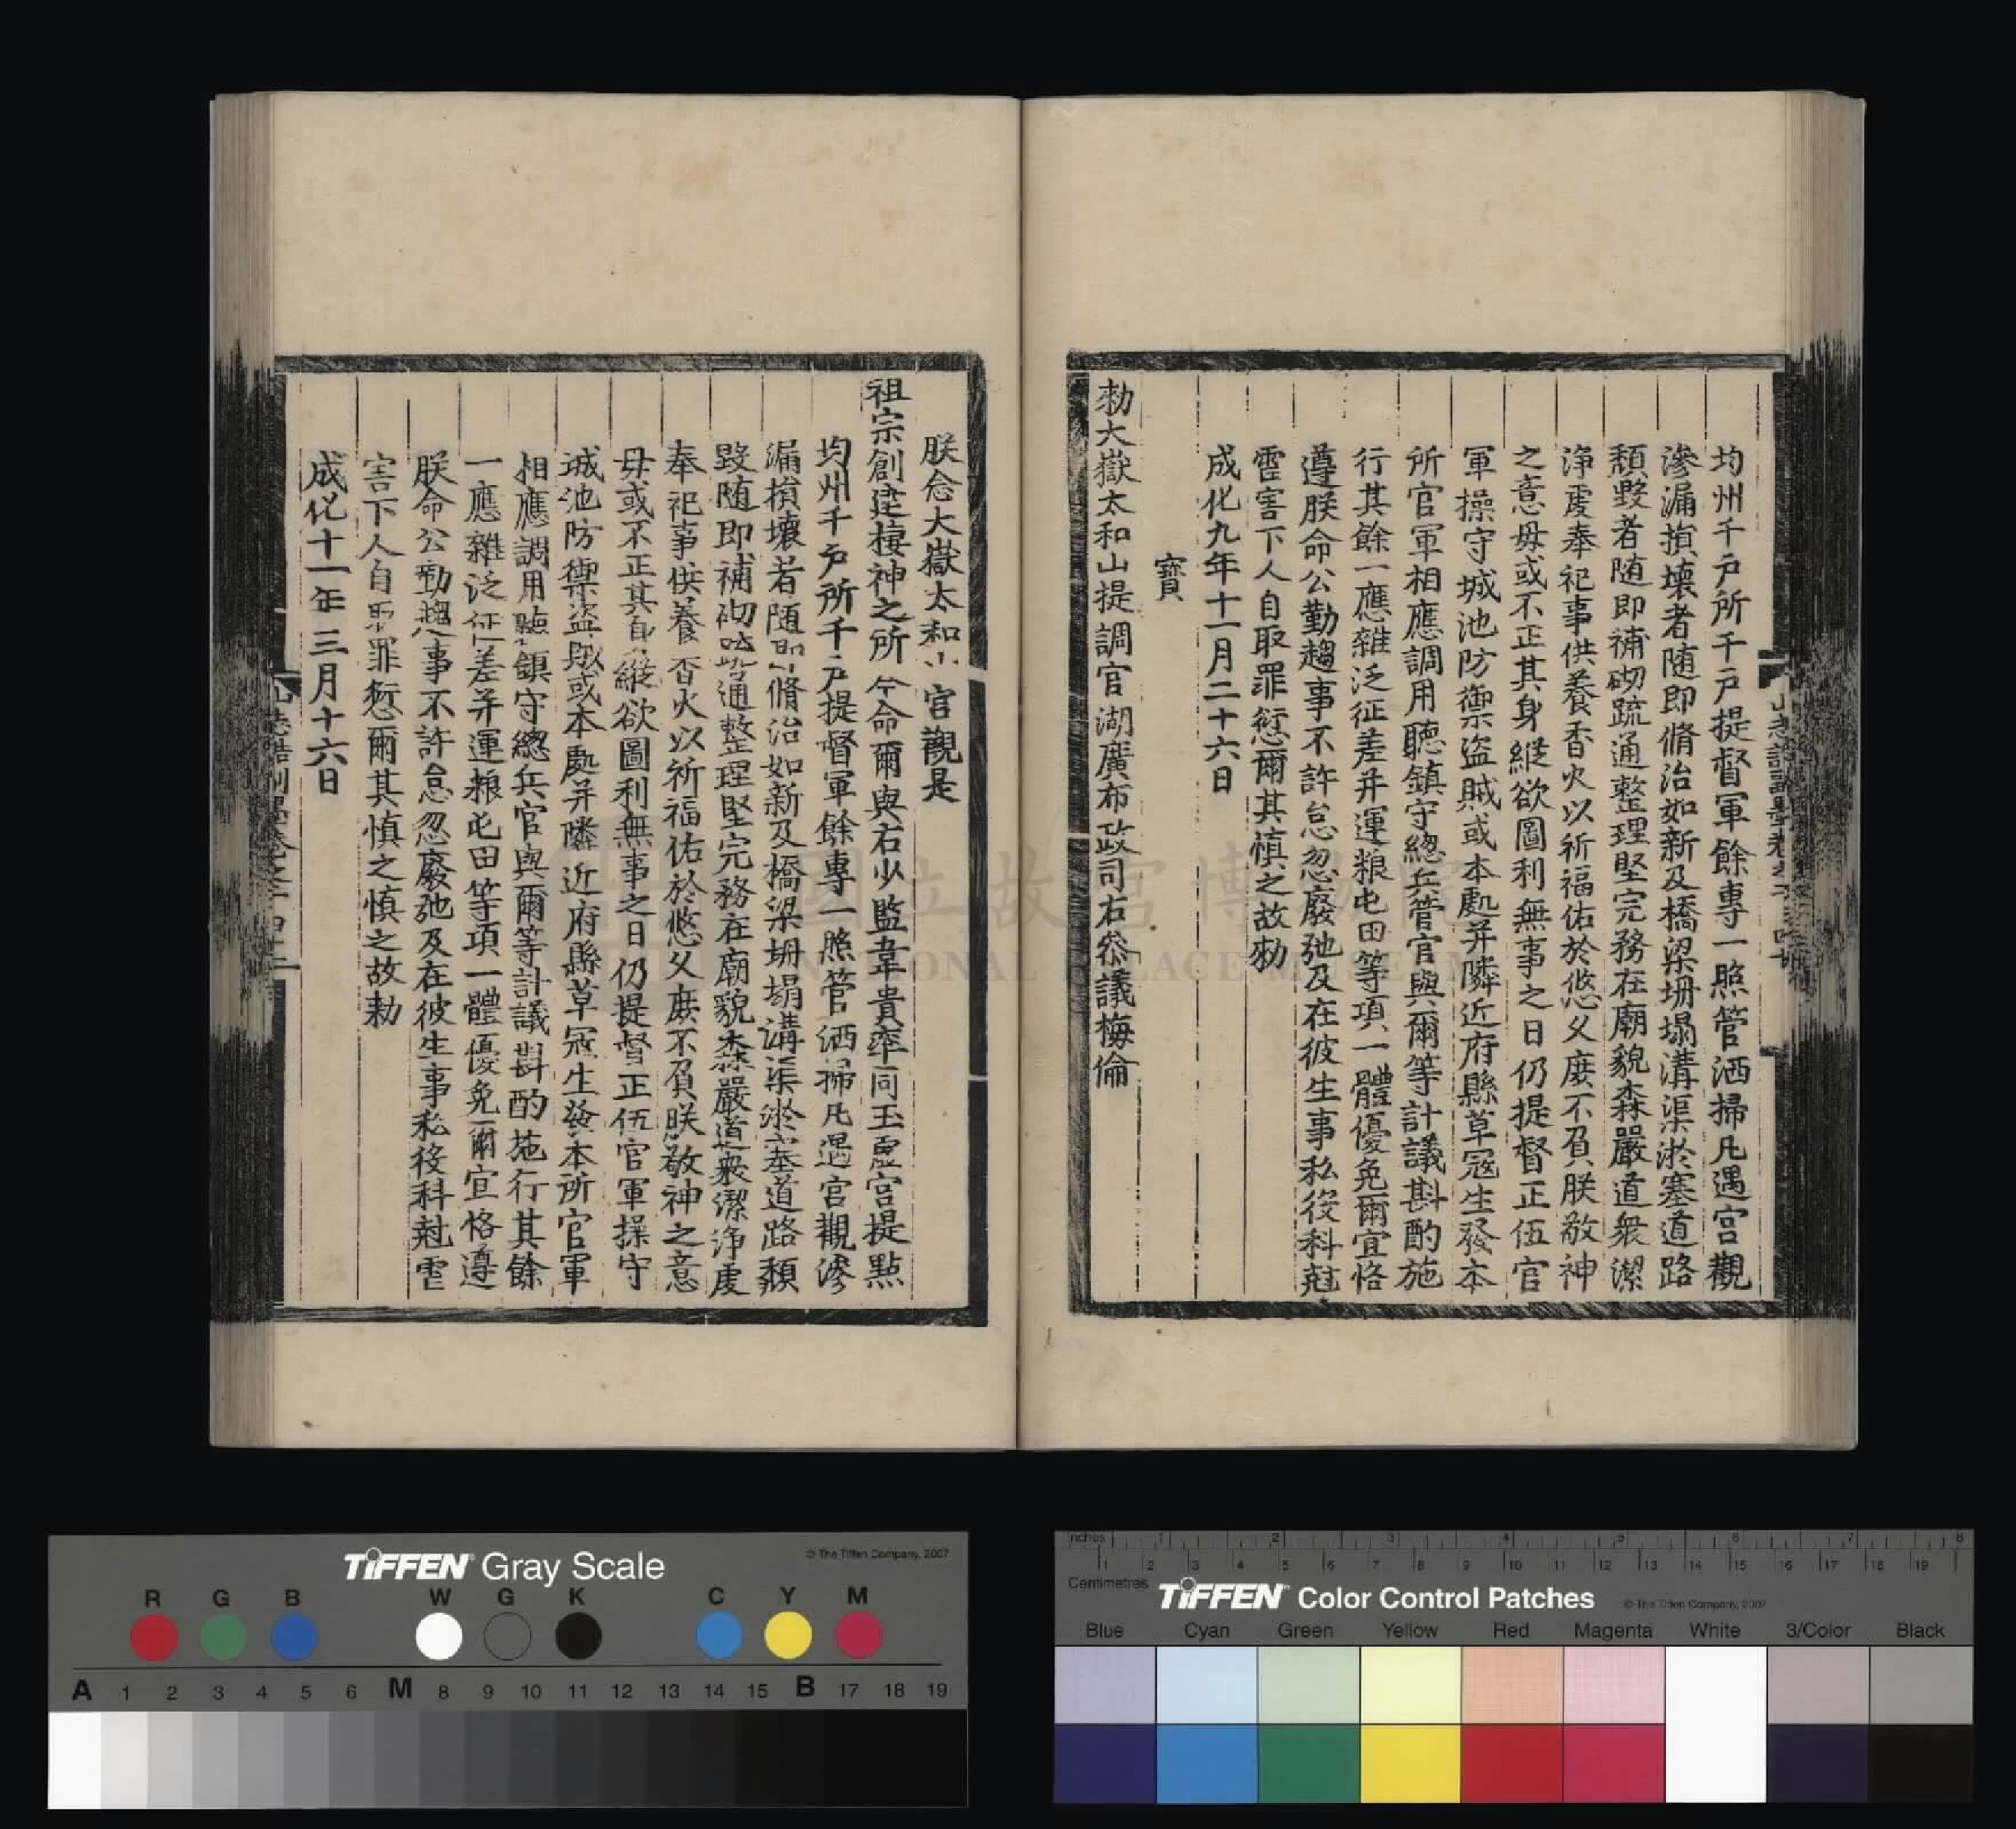 均州千戶所千戶提督軍餘專一照管洒掃凡遇宮觀
滲漏損壞者隨即脩治如新及橋梁坍塌溝渠淤塞道路
頹毀者隨即補砌疏通整理堅完務在廟貌森嚴道衆潔
淨虔奉祀事供養香火以祈福佑於悠久庶不負朕敬神
之意毋或不正其身縱欲圖利無事之日仍提督正伍官
軍操守城池防禦盜賊或本處并隣近府縣草寇生發本
所官軍相應調用聽鎮守總兵管官與爾等計議斟酌施
行其餘一應雜泛征差并運粮屯田等項一體優免爾宜恪
遵朕命公勤趨事不許怠忽廢弛及在彼生事私役科尅
害下人自取罪愆爾其慎之故勑
成化九年十一月二十六日
寶
勑大嶽太和山提調官湖廣布政司右叅議梅倫
朕念大嶽太和山宮觀是
祖宗創建棲神之所今命爾與右少監韋貴率同玉虛宮提點
均州千戶所千戶提督軍餘專一照管洒掃凡遇宮觀滲
漏損壞者隨即脩治如新及橋梁坍塌溝渠淤塞道路頹
毀隨即補砌疏通整理堅完務在廟貌森嚴道衆潔淨虔
奉祀事供養香火以祈福佑於悠久庶不負朕敬神之意
毋或不正其身縱欲圖利無事之日仍提督正伍官軍操守
城池防禦盜賊或本處并隣近府縣草寇生發本所官軍
相應調用聽鎮守總兵官與爾等計議斟酌施行其餘
一應雜泛征差并運粮屯田等項一體優免爾宜恪遵
朕命公勤趨事不許怠忽廢弛及在彼生事私役科尅
害下人自取罪愆爾其慎之慎之故勑
成化十一年三月十六日
國立故宮博物院
NATIONAL PALACE MUSEUM
TIFFEN Gray Scale
© The Tiffen Company, 2007
R G B W G K C Y M
A 1 2 3 4 5 6 M 8 9 10 11 12 13 14 15 B 17 18 19
inches 1 2 3 4 5 6 7 8
1 2 3 4 5 6 7 8 9 10 11 12 13 14 15 16 17 18 19
Centimetres
TIFFEN Color Control Patches
© The Tiffen Company, 2007
Blue Cyan Green Yellow Red Magenta White 3/Color Black